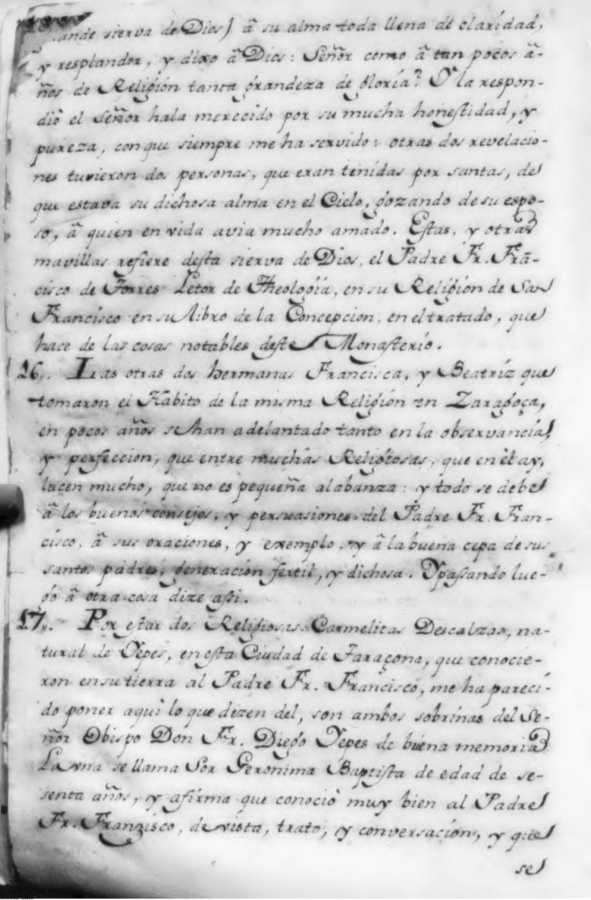 grande sierva de Dios) â su alma toda llena de claridad,
y resplandor, y dixo â Dios: Señor como â tan pocos â-
ños de Religiòn tanta grandeza de gloria? Y la respon-
diò el Señor hala merecido por su mucha honestidad, y
pureza, con que siempre me ha servido: otras dos revelacio-
nes tuvieron dos personas, que eran tenidas por santas, de
que estava su dichosa alma en el Cielo, gozando de su espo-
so, â quien en vida avia mucho amado. Estas, y otras
mavillas refiere desta sierva de Dios, el Padre Fr. Frã-
cisco de Torres Letor de Theologia, en su Religiòn de San
Francisco en su libro de la Concepcion, en el tratado, que
hace de las cosas notables deste Monasterio.
16. Las otras dos hermanas Francisca, y Beatriz que
tomaron el Habito de la misma Religiòn en Zaragoça,
en pocos años se han adelantado tanto en la observancia,
y perfeccion, que entre muchas Religiosas, que en êl ay,
lucen mucho, que no es pequeña alabanza: y todo se debe
â los buenos consejos, y persuasiones del Padre Fr. Fran-
cisco, â sus oraciones, y exemplo, y â la buena cepa de sus
santos padres, generaciòn fertil, y dichosa. Y passando lue-
go â otra cosa dize assi.
17. Por estar dos Religiosas Carmelitas Descalzas, na-
tural de Yepes, en esta Ciudad de Taraçona, que conocie-
ron en su tierra al Padre Fr. Francisco, me ha pareci-
do poner aqui lo que dizen del, son ambos sobrinas del Se-
ñor Obispo Don Fr. Diego Yepes de buena memoria
La vna se llama Sor Geronima Baptista de edad de se-
senta años, y afirma que conociò muy bien al Padre
Fr. Franzisco, de vista, trato, y conversaciòn, y que
se